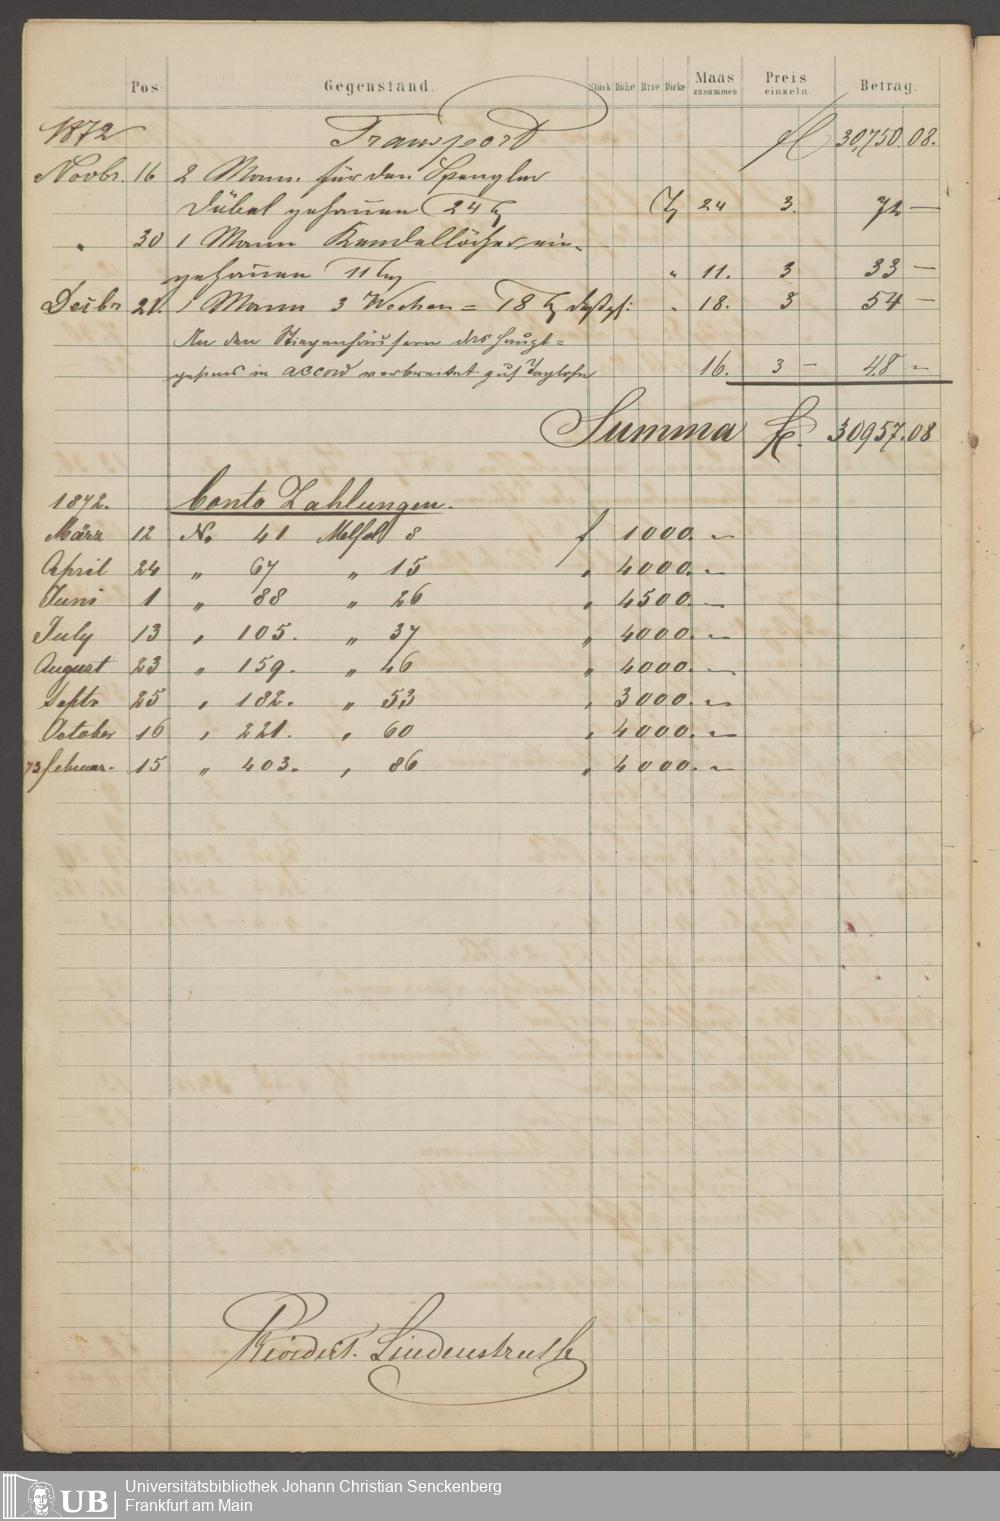 Pos. Gegenstand. Stück Höhe Brte Dicke Maas zusammen Preis einzeln. Betrag.
1872 Transport fl 30,750.08.
Novbr. 16 2 Mann für den Spengler
Dübel gehauen 24 Tg Tg 24 3. 72 —
" 30 1 Mann Kendellöcher ein-
gehauen 11 Tg " 11. 3 33 —
Decbr 21. 1 Mann 3 Wochen = 18 Tg " 18. 3 54 —
An den des Haupt=
gesims in accord verbreitet auf Taglohn 16. 3 — 48 —
Summa fl. 30957.08
1872. Conto Zahlungen.
März 12 No 41 8 f 1000. —
April 24 " 67 " 15 " 4000. —
Juni 1 " 88 " 26 " 4500. —
July 13 " 105. " 37 " 4000. —
August 23 " 159. " 46 " 4000. —
Septb 25 " 182. " 53 " 3000. —
October 16 " 221. " 60 " 4000. —
73 februar. 15 " 403. " 86 " 4000. —
Revidirt. Lindenstruth
UB Universitätsbibliothek Johann Christian Senckenberg
Frankfurt am Main